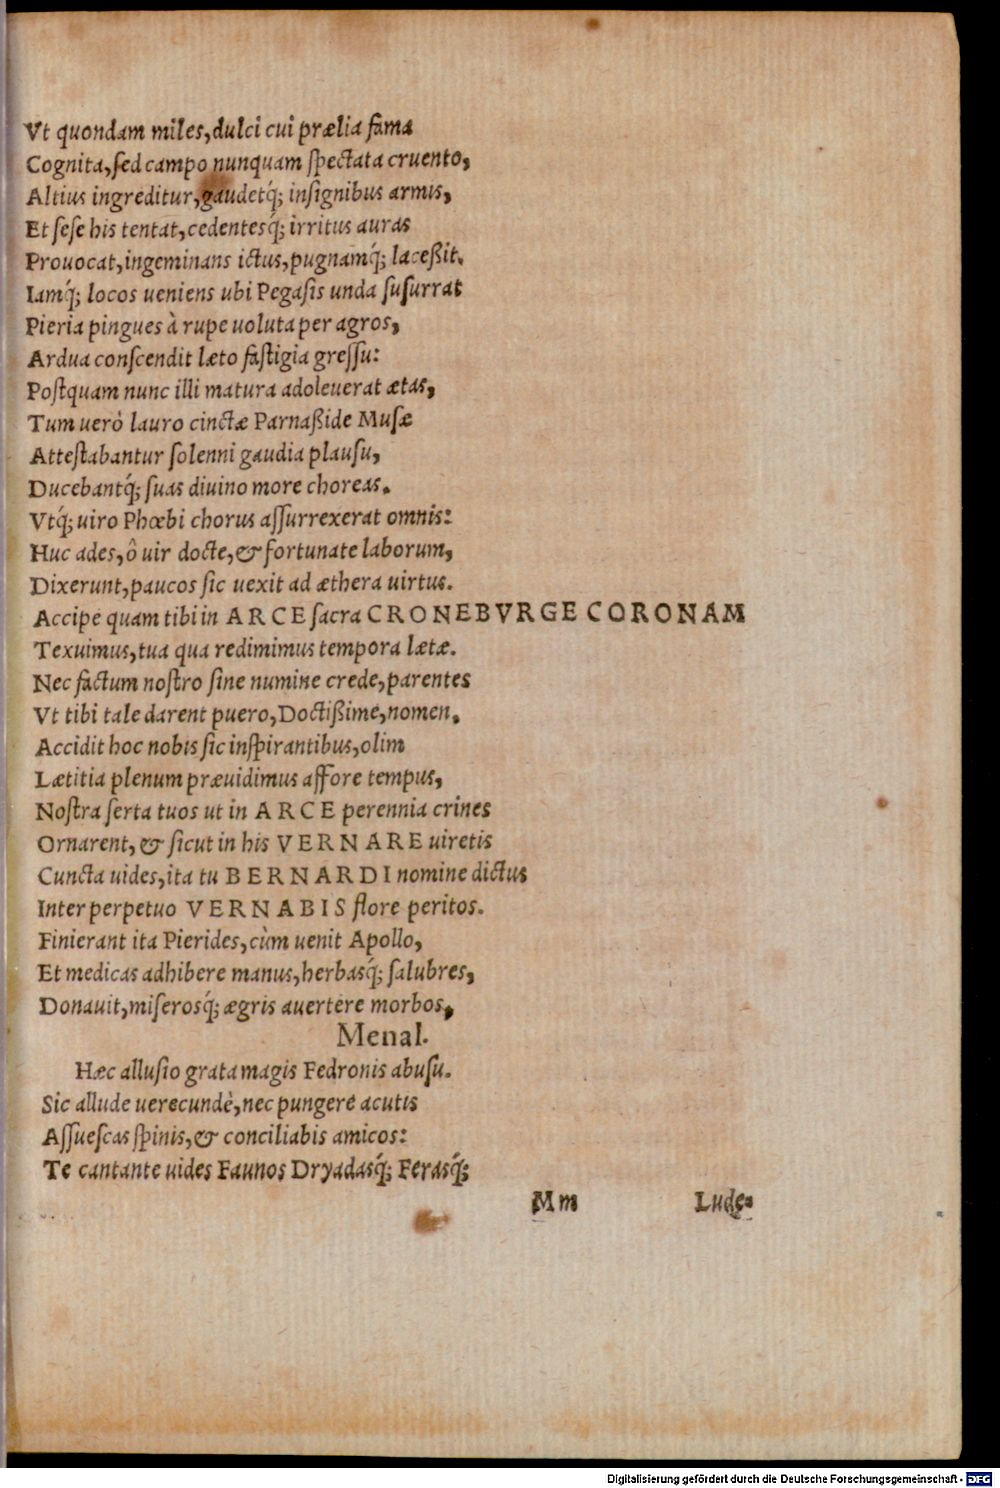 Vt quondam miles, dulci cui prælia fama
Cognita, ſed campo nunquam ſpectata cruento,
Altius ingreditur, gaudetq́; inſignibus armis,
Et ſeſe his tentat, cedentesq́; irritus auras
Prouocat, ingeminans ictus, pugnamq́; laceßit.
Iamq́; locos ueniens ubi Pegaſis unda ſuſurrat
Pieria pingues à rupe uoluta per agros,
Ardua conſcendit læto faſtigia greſſu:
Poſtquam nunc illi matura adoleuerat ætas,
Tum uerò lauro cinctæ Parnaßide Muſæ
Atteſtabantur ſolenni gaudia plauſu,
Ducebantq́; ſuas diuino more choreas.
Vtq́; uiro Phœbi chorus aſſurrexerat omnis:
Huc ades, ô uir docte, & fortunate laborum,
Dixerunt, paucos ſic uexit ad æthera uirtus.
Accipe quam tibi in ARCE ſacra CRONEBVRGE CORONAM
Texuimus, tua qua redimimus tempora lætæ.
Nec factum noſtro ſine numine crede, parentes
Vt tibi tale darent puero, Doctißime, nomen.
Accidit hoc nobis ſic inſpirantibus, olim
Lætitia plenum præuidimus affore tempus,
Noſtra ſerta tuos ut in ARCE perennia crines
Ornarent, & ſicut in his VERNARE uiretis
Cuncta uides, ita tu BERNARDI nomine dictus
Inter perpetuo VERNABIS flore peritos.
Finierant ita Pierides, cùm uenit Apollo,
Et medicas adhibere manus, herbasq́; ſalubres,
Donauit, miſerosq́; ægris auertere morbos.
Menal.
Hæc alluſio grata magis Fedronis abuſu.
Sic allude uerecundè, nec pungere acutis
Aſſueſcas ſpinis, & conciliabis amicos:
Te cantante uides Faunos Dryadasq́; Ferasq́;
Mm Lude-
Digitalisierung gefördert durch die Deutsche Forschungsgemeinschaft - DFG